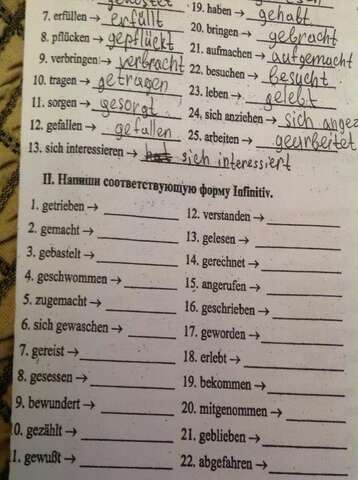 7. erfüllen → erfüllt
8. pflücken → gepflückt
9. verbringen → verbracht
10. tragen → getragen
11. sorgen → gesorgt
12. gefallen → gefallen
13. sich interessieren → sich interessiert
19. haben → gehabt
20. bringen → gebracht
21. aufmachen → aufgemacht
22. besuchen → besucht
23. leben → gelebt
24. sich anziehen → sich angez
25. arbeiten → gearbeitet
II. Напиши соответствующую форму Infinitiv.
1. getrieben →
2. gemacht →
3. gebastelt →
4. geschwommen →
5. zugemacht →
6. sich gewaschen →
7. gereist →
8. gesessen →
9. bewundert →
0. gezählt →
1. gewußt →
12. verstanden →
13. gelesen →
14. gerechnet →
15. angerufen →
16. geschrieben →
17. geworden →
18. erlebt →
19. bekommen →
20. mitgenommen →
21. geblieben →
22. abgefahren →